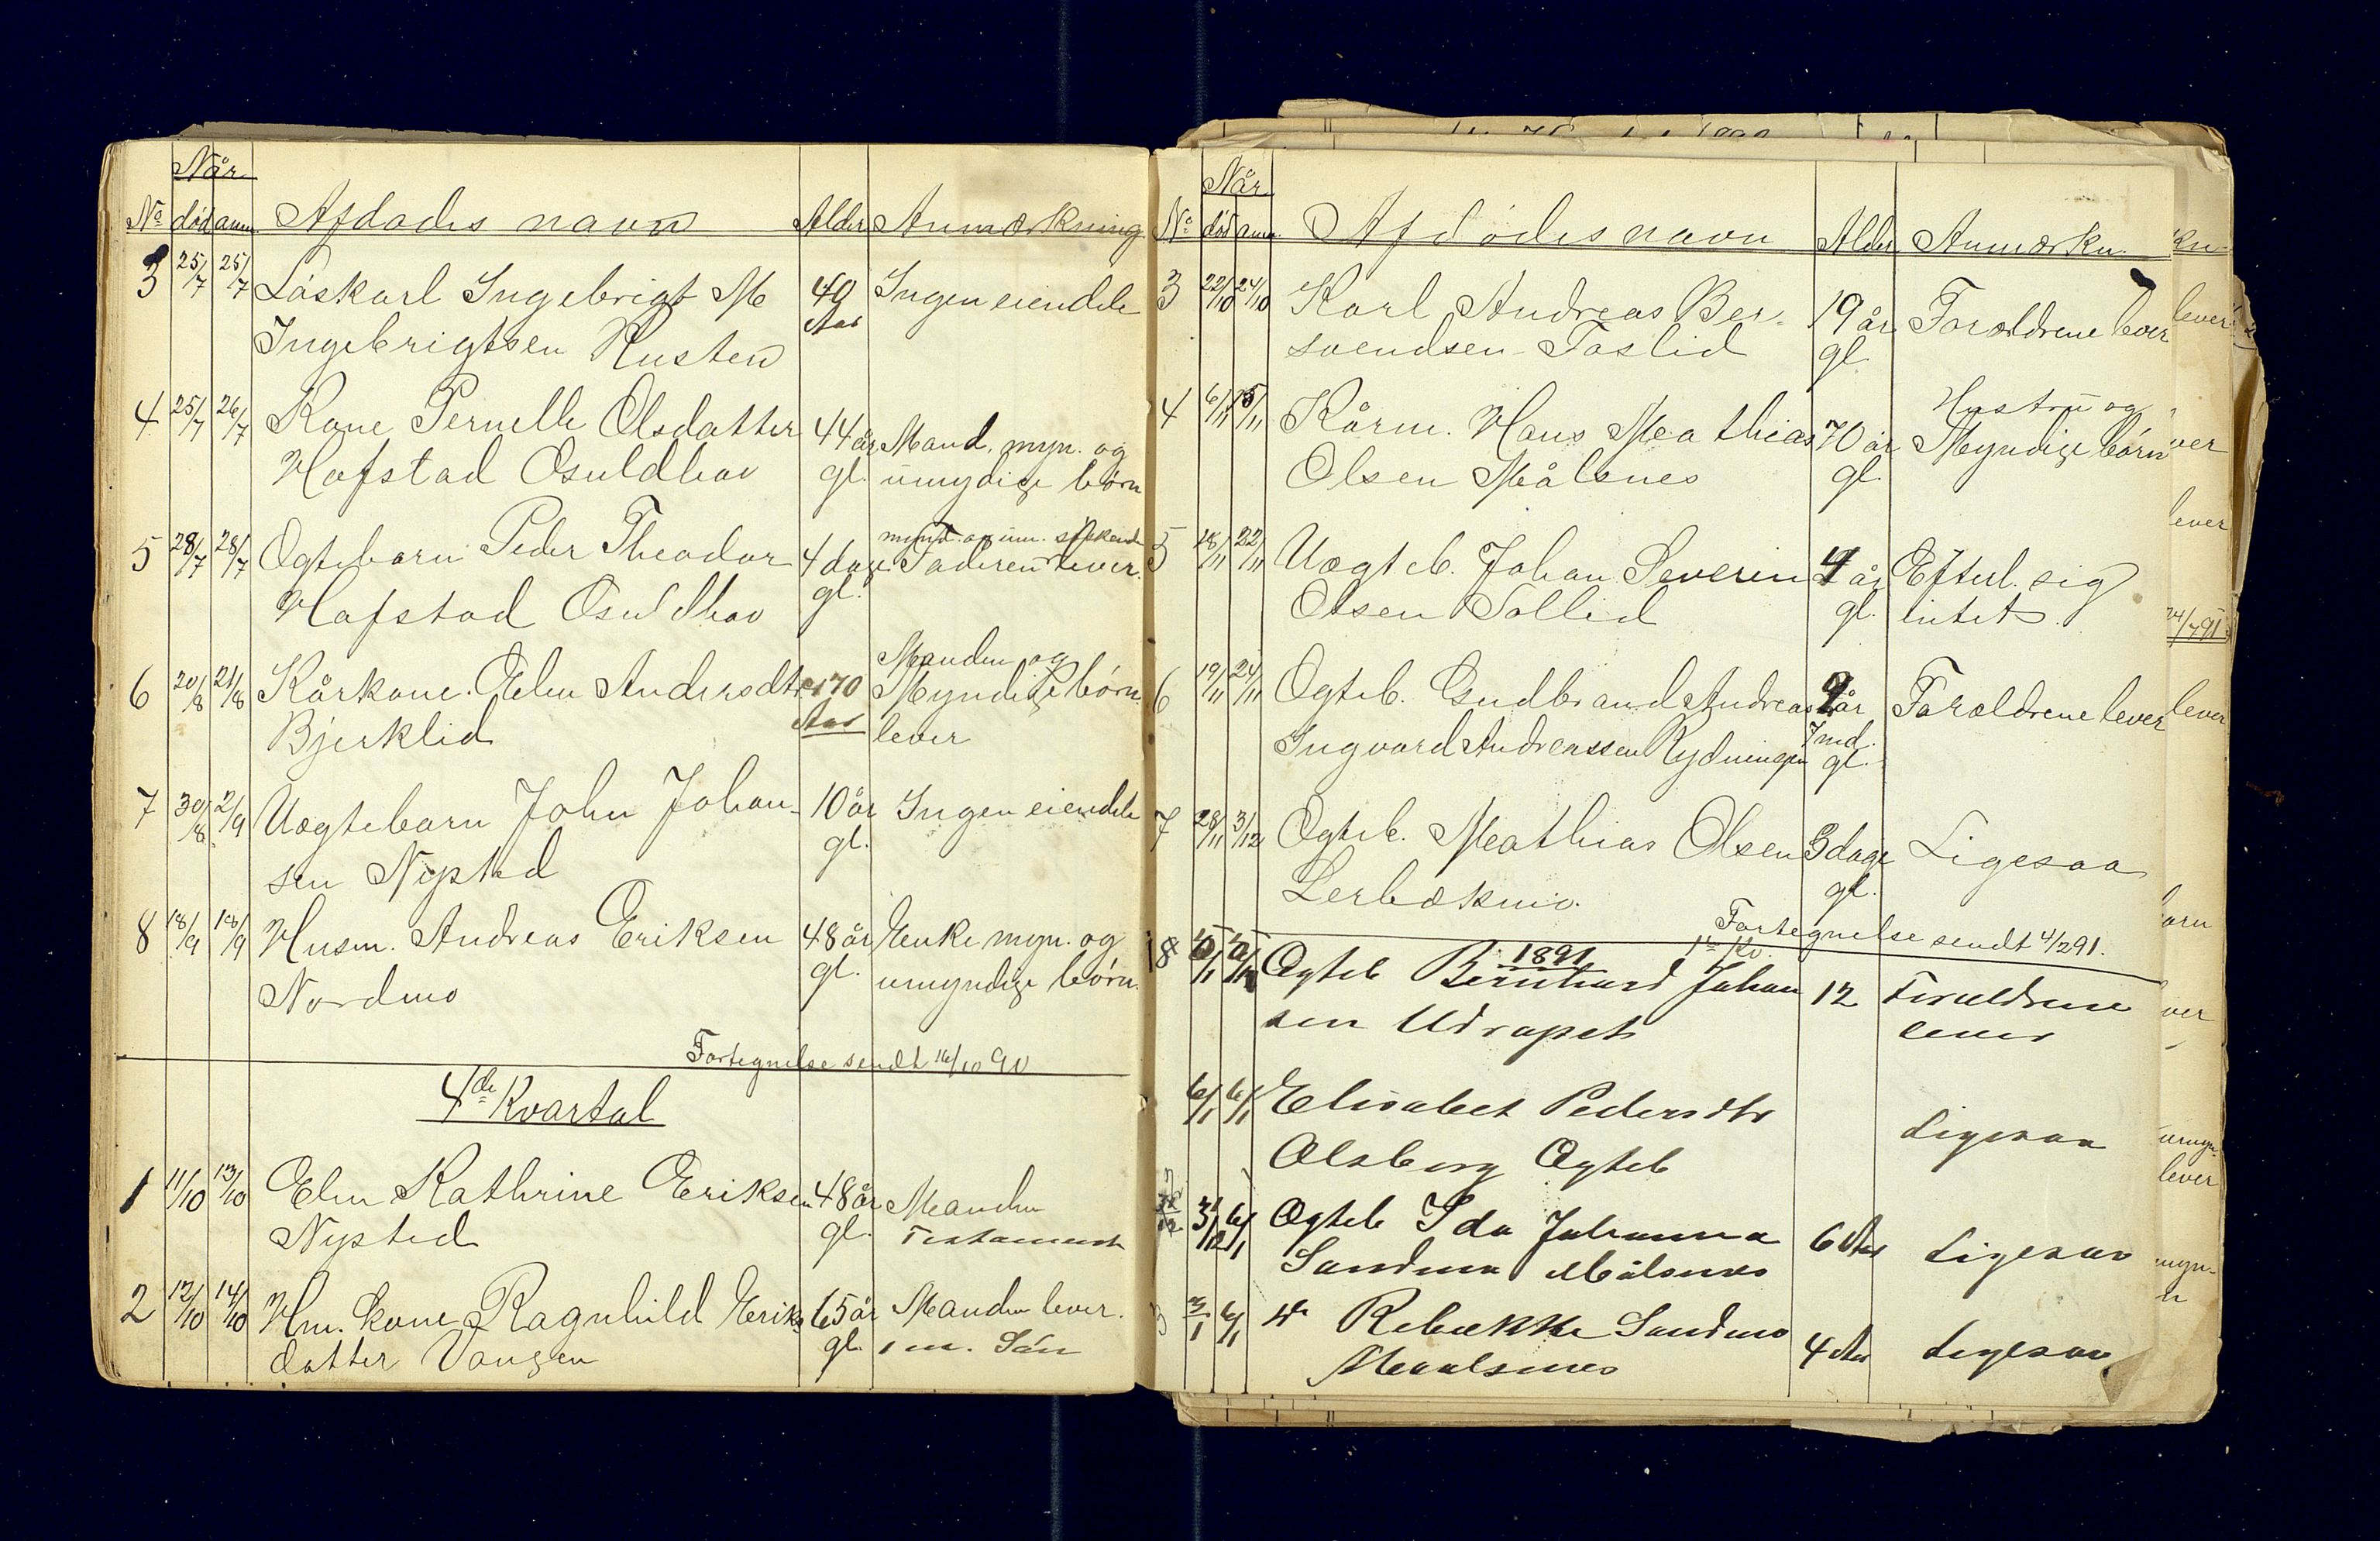 Når
No død anm. Afdødes navn Alder Anmærkning
3 25/7 25/7 Løskarl Ingebrigt M 40 Ingen eiendele
Ingebrigtsen Rusten Aar
4 25/7 26/7 Kone Pernelle Olsdatter 44 år Mand, myn. og
Hofstad Osuldhav gl. umydige børn
5 28/7 28/7 Ogtebarn Peder Theodor 4 dage Faderen lever.
mynd. og um. søskende
Hofstad Osuldhav gl.
6 20/8 21/8 Kårkone. Elen Andersdtr 70 Myndige børn
Manden og
Bjerklid Aar lever
7 30/8 2/9 Uægtebarn John Johan- 10 år Ingen eiendele
sen Nysted gl.
8 18/9 18/9 Husm. Andreas Eriksen 48 år Enke myn. og
Nordmo gl. umyndige børn.
Fortegnelse sendt 16/10 90
4de Kvartal
1 11/10 13/10 Elen Kathrine Eriksen 48 år Manden
Nysted gl. Testament
2 12/10 14/10 Hm. kone Ragnhild Eriks 65 år Manden lever.
datter Vangen gl. 1 m. Søn
Når
No død anm. Afdødes navn Alder Anmærkn.
3 22/10 24/10 Karl Andreas Ber- 19 år Forældrene lever
svendsen Foslid gl.
4 6/11 15/11 Kårm. Hans Mathias 70 år Myndige børn
Hustru og
Olsen Målsnes gl.
5 18/11 22/11 Uægteb. Johan Severin 4 år Efterl. sig
Olsen Sollid gl. intet
6 19/11 24/11 Ogteb. Gudbrand Andreas 9 år Forældrene lever
Ingvard Andreassen Rydningen 7 md. gl.
7 28/11 3/12 Ogteb. Mathias Olsen 3 dage Ligesaa
Lerbækmo. gl.
Fortegnelse sendt 4/2 91.
1891 1ste Kv.
8 Ogteb Bernhard Johan 12 Forældrene
sen lever
6/1 6/1 Elisabet Pedersdtr
Olsborg Ogteb Ligesaa
31/12 6/1 Ogteb Ida Johanna 6 Aar Ligesaa
Sandmo Målsnes
3 3/1 6/1 Rebekka Sandmo 4 Aar Ligesaa
Maalsnes
kn.
lever
ver
lever
24/7 91
lever
børn
ver
umyn.
lever
myn-